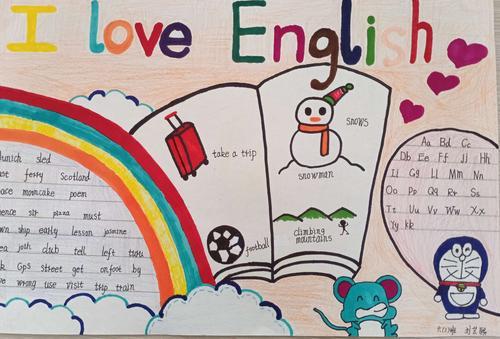 I love English
unich sled
ferry Scotland
mooncake poem
sir pizza must
ship early lesson jasmine
josh club tell left
GPS street get on foot by
wrong use visit trip train
take a trip
football
snows
snowman
climbing
mountains
Aa Bd Cc
Db Ee Ff Jl Hh
Ii Gg Ll Mm Nn
Oo Pp Qq Rr Ss
Tt Uu Vv Ww Xx
Yy kk